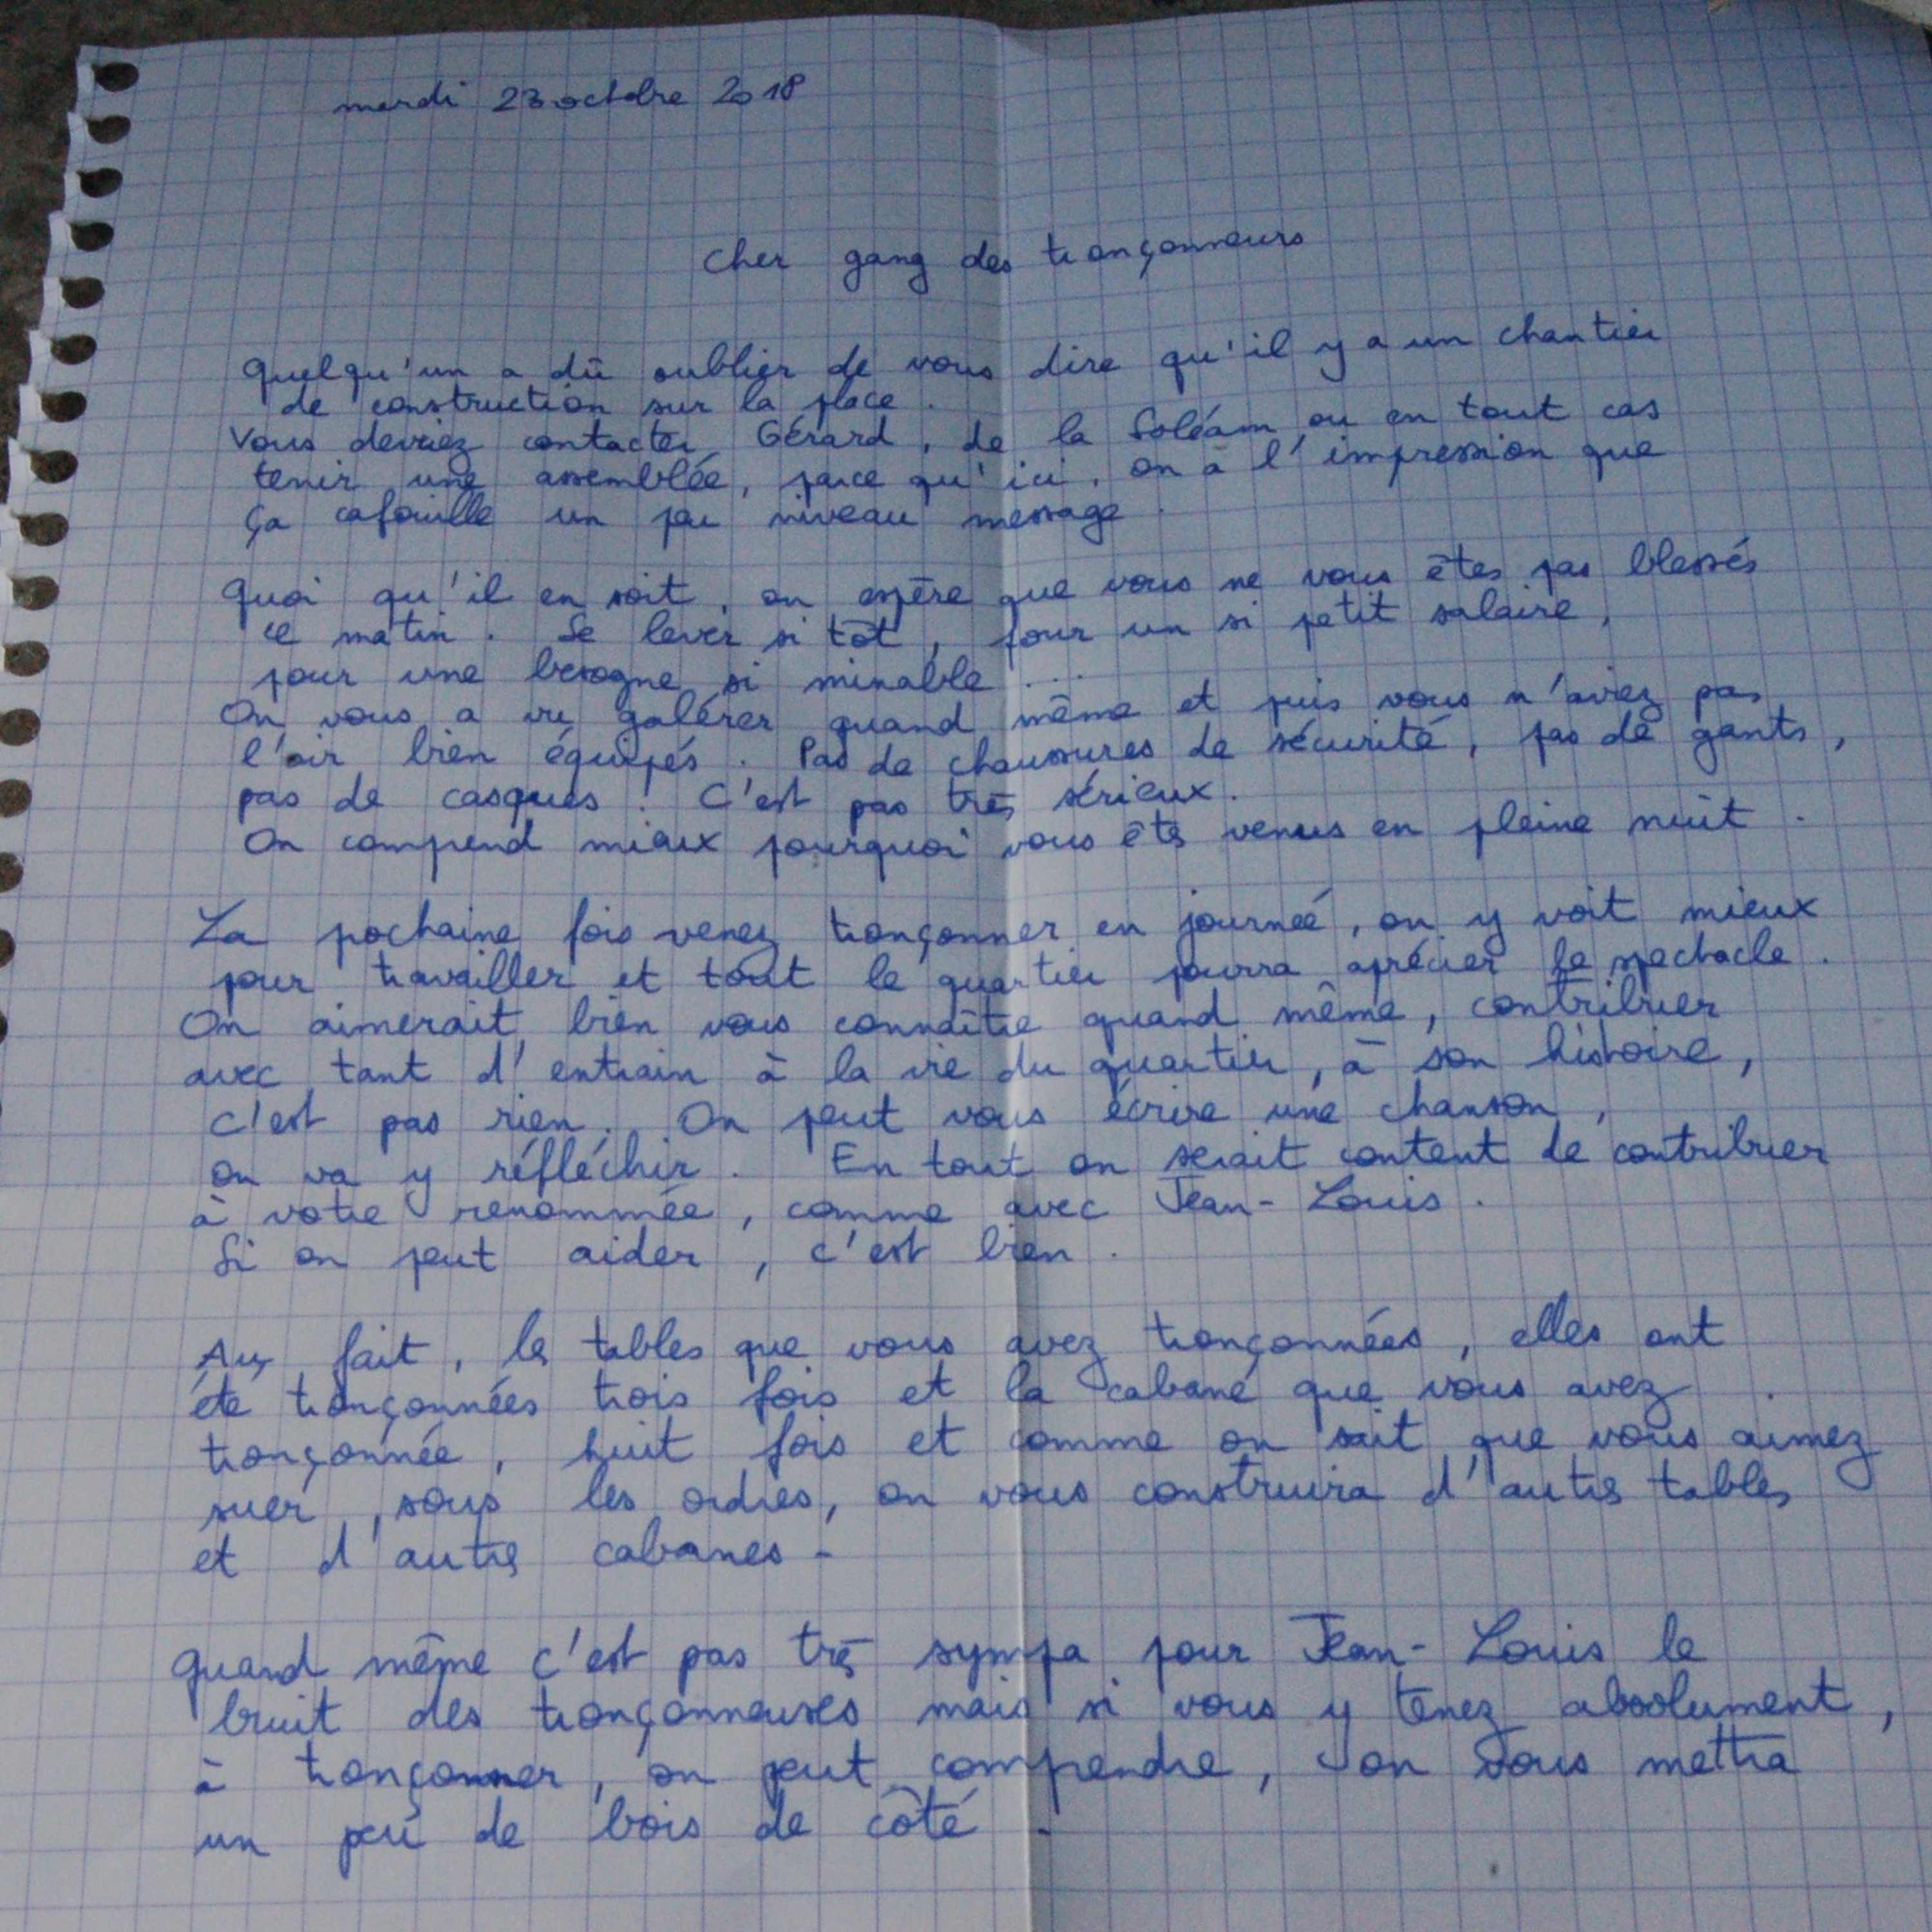 mardi 23 octobre 2018
Cher gang des tronçonneurs
Quelqu'un a dû oublier de vous dire qu'il y a un chantier
de construction sur la place.
Vous devriez contacter Gérard, de la Soléam ou en tout cas
tenir une assemblée, parce qu'ici, on a l'impression que
ça cafouille un peu niveau message.
Quoi qu'il en soit, on espère que vous ne vous êtes pas blessés
ce matin. Se lever si tôt, pour un si petit salaire,
pour une besogne si minable...
On vous a vu galérer quand même et puis vous n'aviez pas
l'air bien équipés. Pas de chaussures de sécurité, pas de gants,
pas de casques ! C'est pas très sérieux.
On comprend mieux pourquoi vous êtes venus en pleine nuit.
La pochaine fois venez tronçonner en journeé, on y voit mieux
pour travailler et tout le quartier pourra aprécier le spectacle.
On aimerait bien vous connaître quand même, contribuer
avec tant d'entrain à la vie du quartier, à son histoire,
c'est pas rien. On peut vous écrire une chanson,
on va y réfléchir. En tout on serait content de contribuer
à votre renommée, comme avec Jean-Louis.
Si on peut aider, c'est bien.
Au fait, les tables que vous avez tronçonnées, elles ont
été tronçonnées trois fois et la cabane que vous avez
tronçonnée, huit fois et comme on sait que vous aimez
suer, sous les ordres, on vous construira d'autres tables
et d'autres cabanes -
Quand même c'est pas très sympa pour Jean-Louis le
bruit des tronçonneuses mais si vous y tenez absolument,
à tronçonner, on peut comprendre, on vous mettra
un peu de bois de côté.